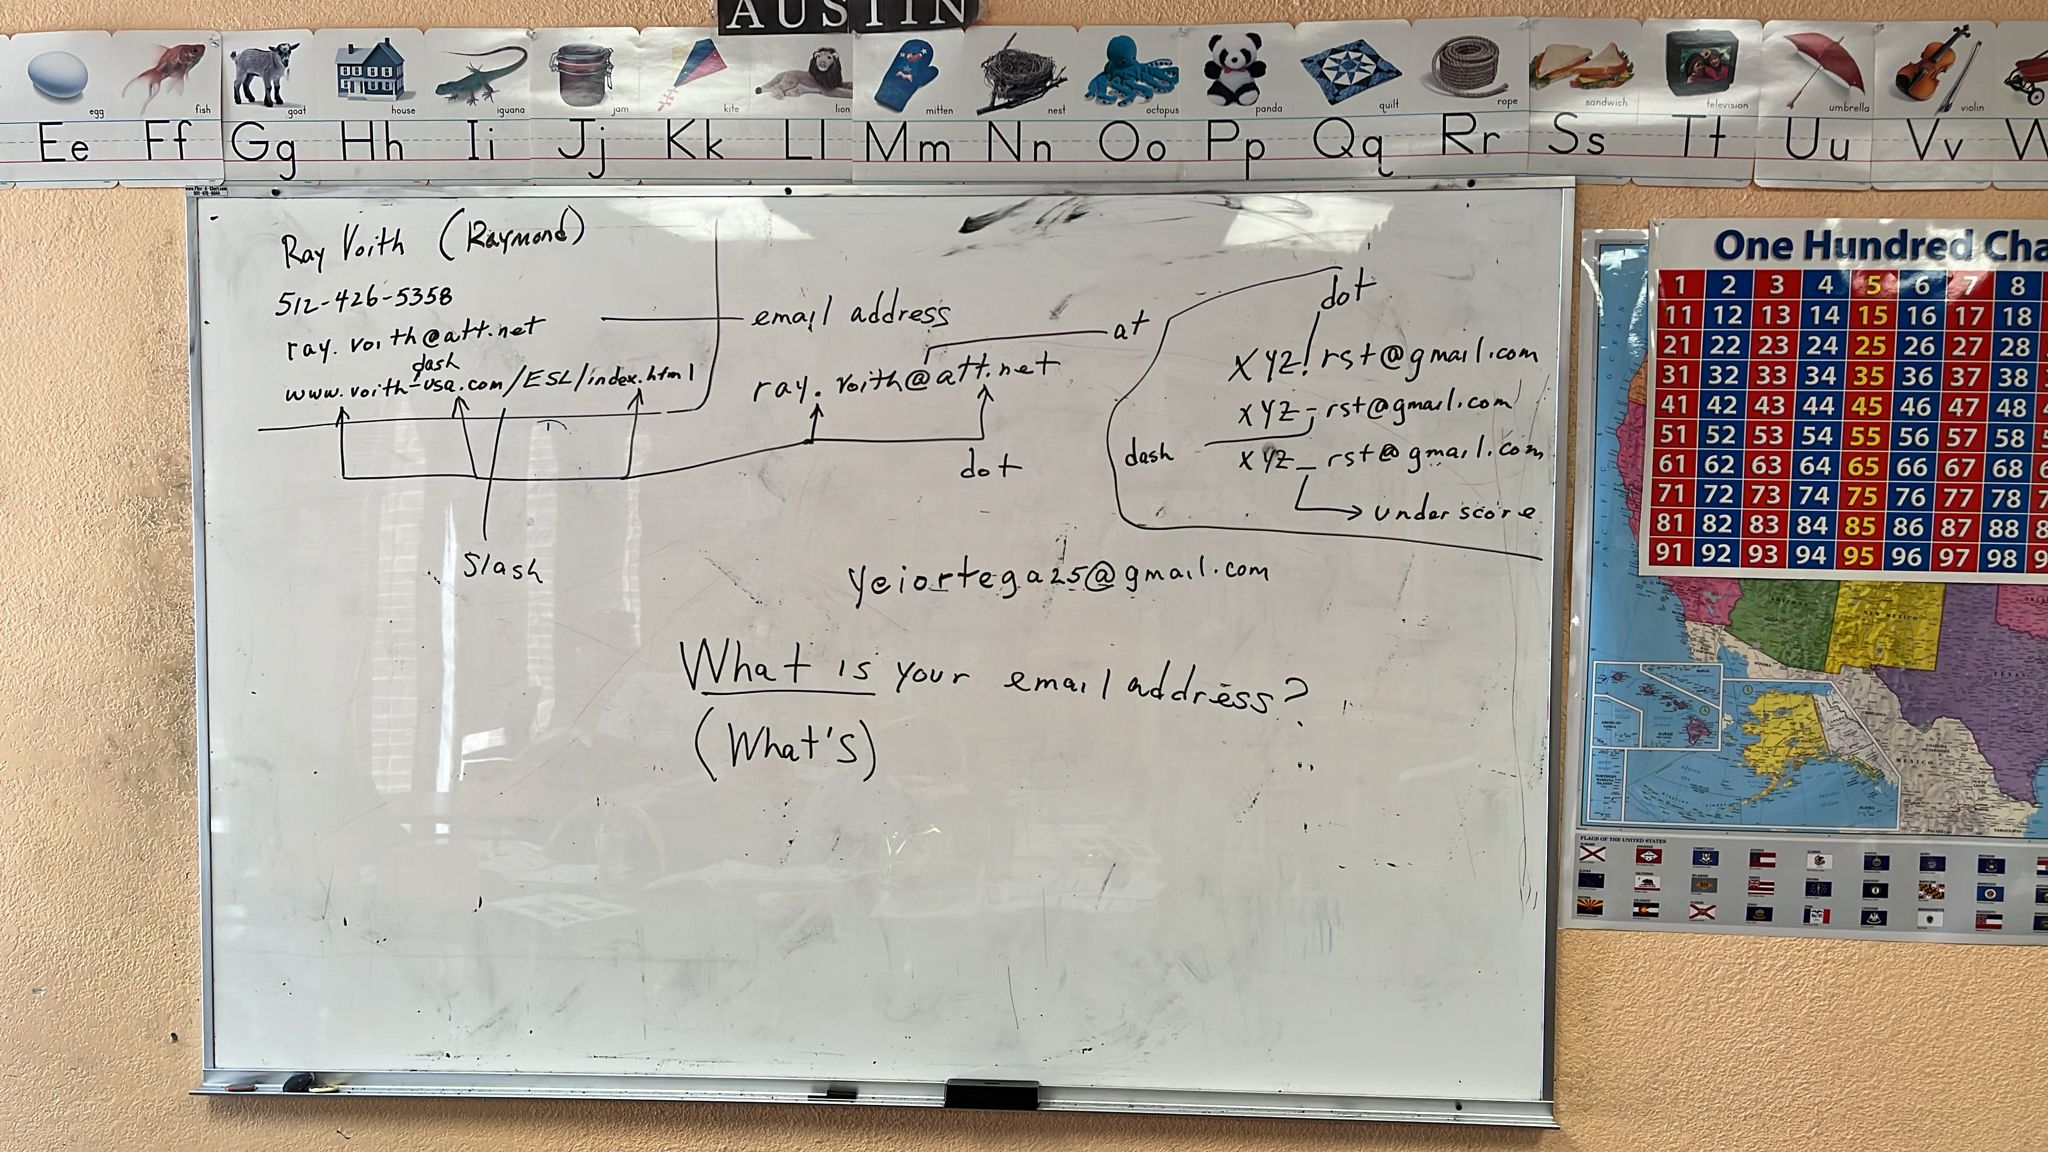 AUSTIN
egg fish goat house iguana jam kite lion mitten nest octopus panda quilt rope sandwich television umbrella violin
Ee Ff Gg Hh Ii Jj Kk Ll Mm Nn Oo Pp Qq Rr Ss Tt Uu Vv W
Ray Voith (Raymond)
512-426-5358
ray.voith@att.net
dash
www.voith-usa.com/ESL/index.html
Slash
email address
at
ray.voith@att.net
dot
dot
xyz.rst@gmail.com
xyz-rst@gmail.com
dash
xyz_rst@gmail.com
underscore
yeiortega25@gmail.com
What is your email address?
(What's)
One Hundred Cha
1 2 3 4 5 6 7 8
11 12 13 14 15 16 17 18
21 22 23 24 25 26 27 28
31 32 33 34 35 36 37 38
41 42 43 44 45 46 47 48
51 52 53 54 55 56 57 58
61 62 63 64 65 66 67 68
71 72 73 74 75 76 77 78
81 82 83 84 85 86 87 88
91 92 93 94 95 96 97 98
PACIFIC OCEAN
ARIZONA
NEW MEXICO
TEXAS
MEXICO
FLAGS OF THE UNITED STATES